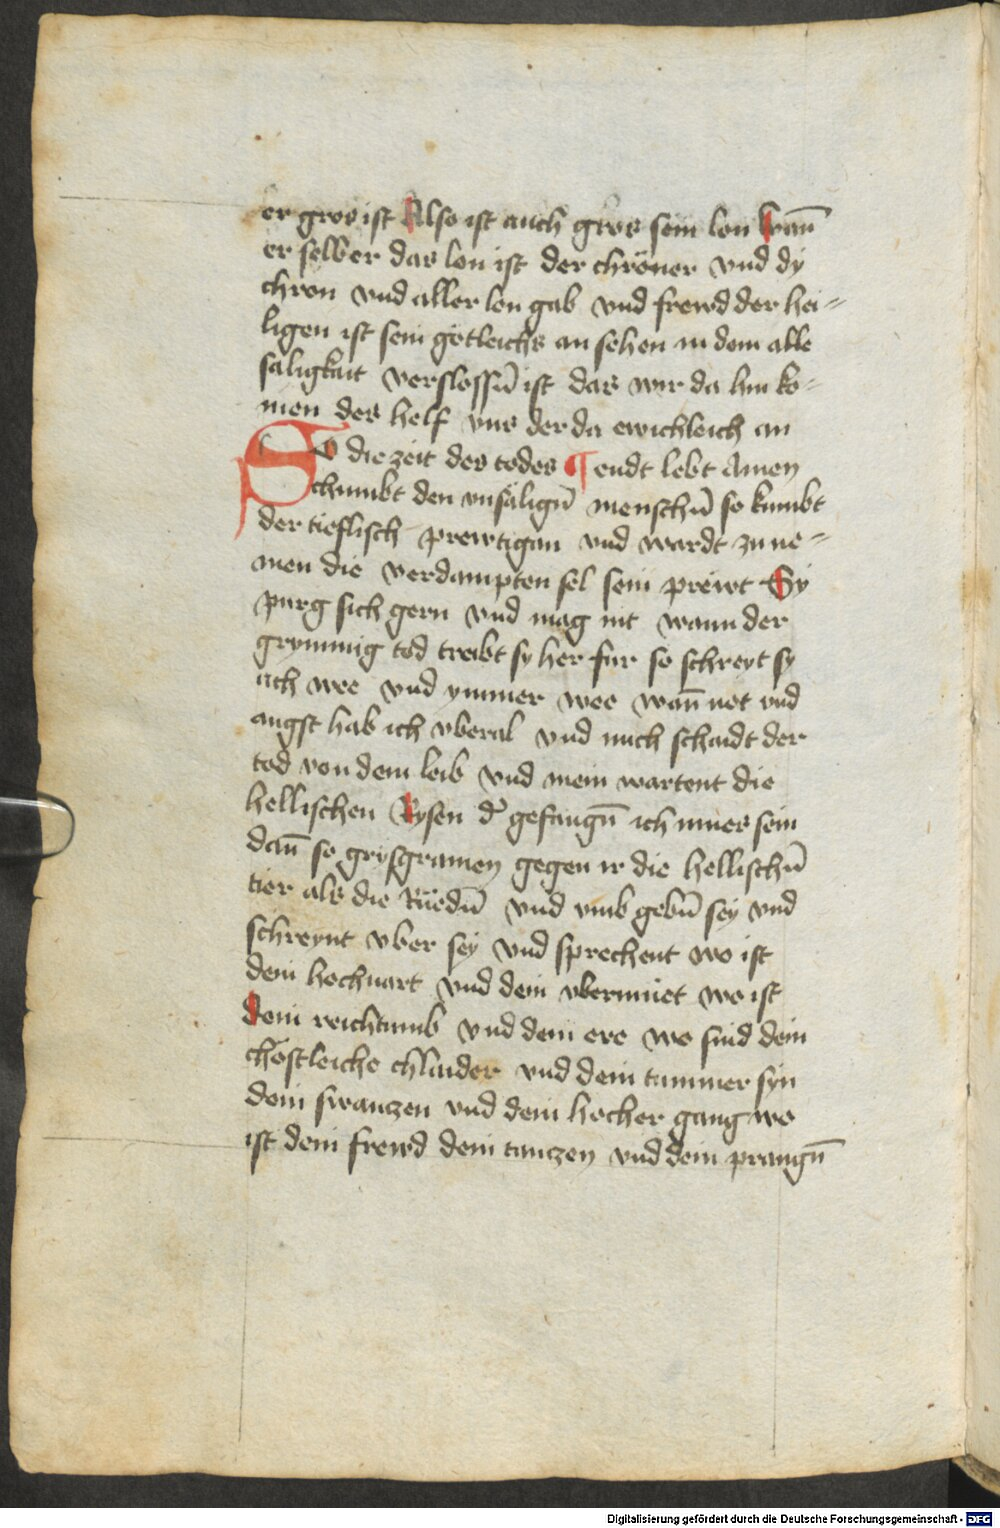 er gros ist Also ist auch gros sein lon wan̄
er selber das lon ist der chröner vnd dy
chron vnd aller lon gab vnd frewd der hei=
ligen ist sein götleichs an sehen in dem alle
saligkait verslossn̄ ist das wir da hin ko=
men des helf vns der da ewichleich an
So die zeit des todes ¶ endt lebt Amen
chumbt den vnsälign̄ menschn̄ so kumbt
der tieflisch prewtigan vnd wardt zu ne=
men die verdampten sel sein prëwt Sy
purg sich gern vnd mag nit wann der
grymmig tod treibt sy her fur so schreyt sy
ach wee vnd ymmer wee wan̄ not vnd
angst hab ich vberal vnd mich schaidt der
tod von dem leib vnd mein wartent die
hellischen Rysen d' gefangn̄ ich mues sein
dan̄ so grysgramen gegen ir die hellischn̄
tier als die Rüedn̄ vnd vmb gebn̄ sey vnd
schreynt vber sey vnd sprechent wo ist
dein hochuart vnd dein vbermüet wo ist
dein reichtumb vnd dein ere wo sind dein
chöstleiche chlaider vnd dein tummer syn
dein swanczen vnd dein hocher gang wo
ist dein frewd dein tanczen vnd dein prangn̄
Digitalisierung gefördert durch die Deutsche Forschungsgemeinschaft - DFG